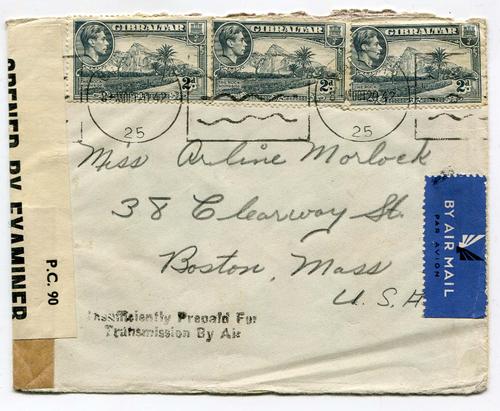 GIBRALTAR
2D
GIBRALTAR
2D
GIBRALTAR
2D
25
25
Miss Arline Morlock
38 Clearway St.
Boston, Mass
U. S. A
BY AIR MAIL
PAR AVION
OPENED BY EXAMINER
P.C. 90
Insufficiently Prepaid For
Transmission By Air